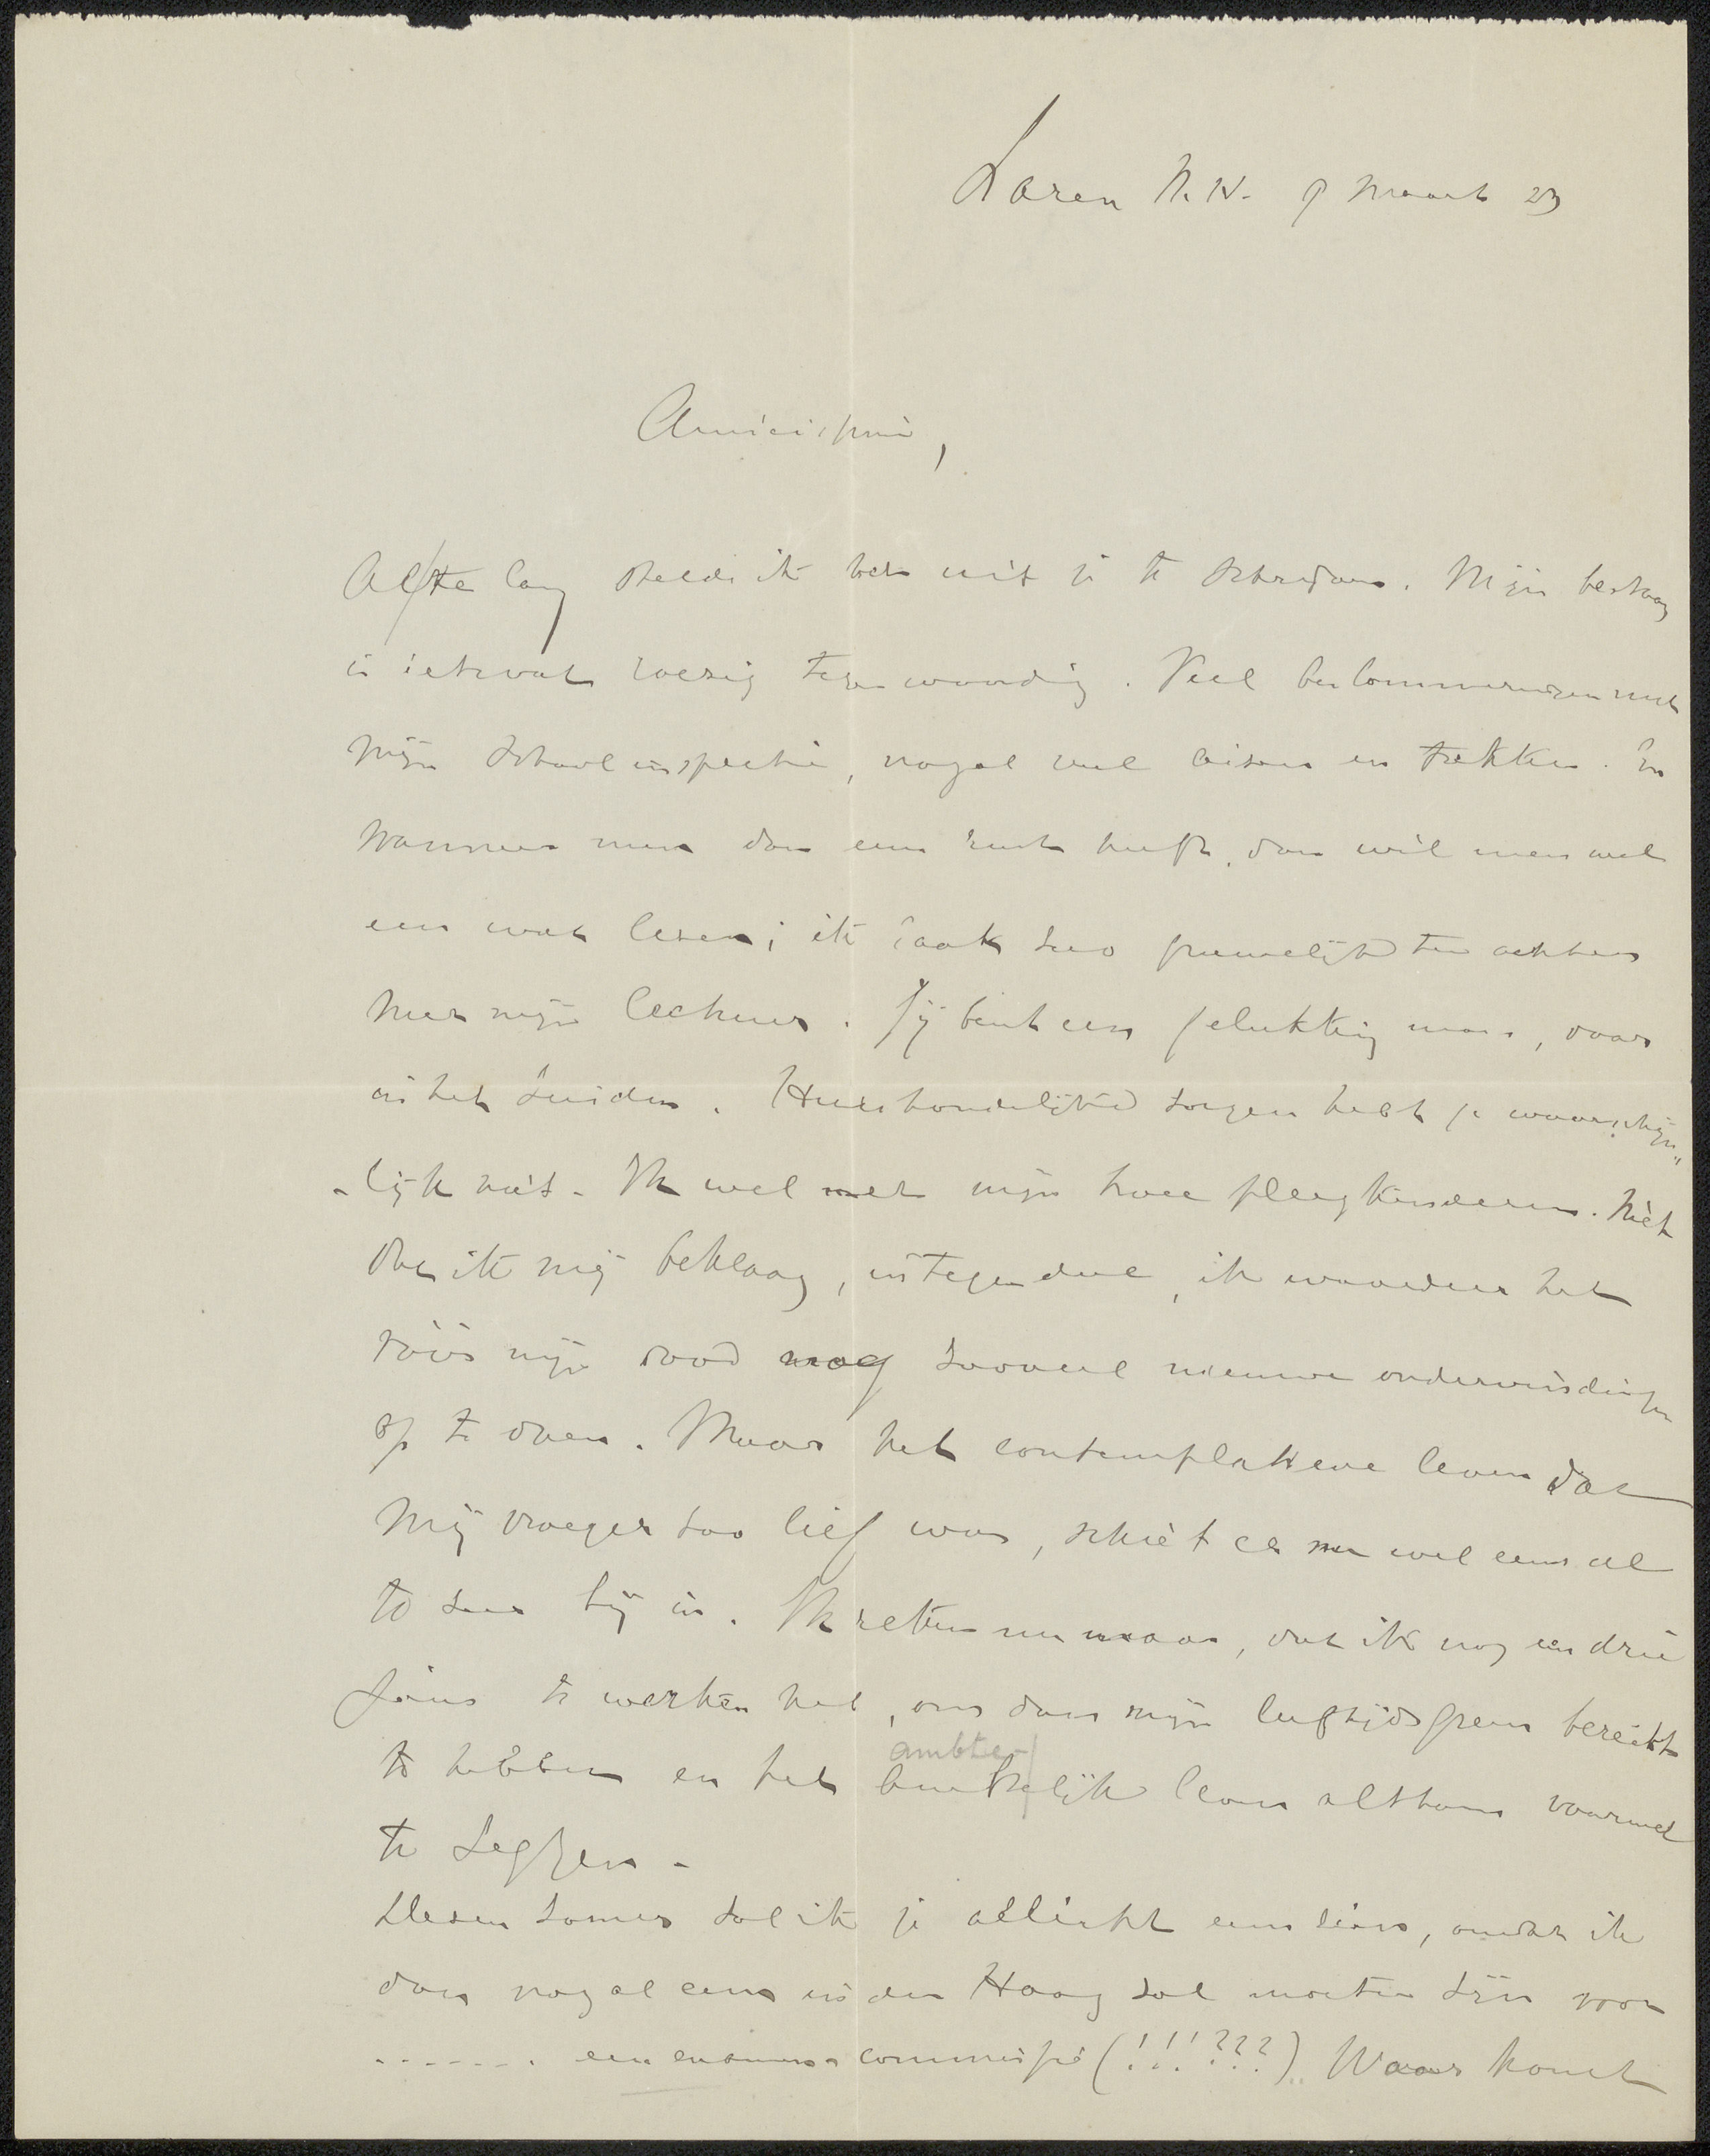 Laren N.H. 9 Maart 23
Amicissime,
Al te lang stelde ik het uit je te schrijven. Mijn bestaan
is ietwat roezig tegenwoordig. Veel beslommeringen met
mijn schoolinspectie, nogal veel reizen en trekken. En
wanneer men dan eens rust heeft, dan wil men wel
eens wat lezen; ik raak zoo gruwelijk ten achter
met mijn lectuur. Jij bent een gelukkig man, daar
in het Zuiden. Huishoudelijke zorgen hebt je waarschijn-
-lijk niet. Ik wel met mijn twee pleegkinderen. Niet
dat ik mij beklaag, integendeel, ik waardeer het
vóór mijn dood nog zooveel nieuwe ondervindingen
op te doen. Maar het contemplatieve leven dat
mij vroeger zoo lief was, schiet er nu wel eens al
te zeer bij in. Ik reken nu maar, dat ik nog een drie
jaar te werken heb, om dan mijn leeftijdsgrens bereikt
ambte-
te hebben en het ambtelijk leven althans vaarwel
te zeggen.
Dezen zomer zal ik je allicht eens zien, omdat ik
dan nogal eens in den Haag zal moeten zijn voor
....... een examencommissie (!!!???). Waar komt